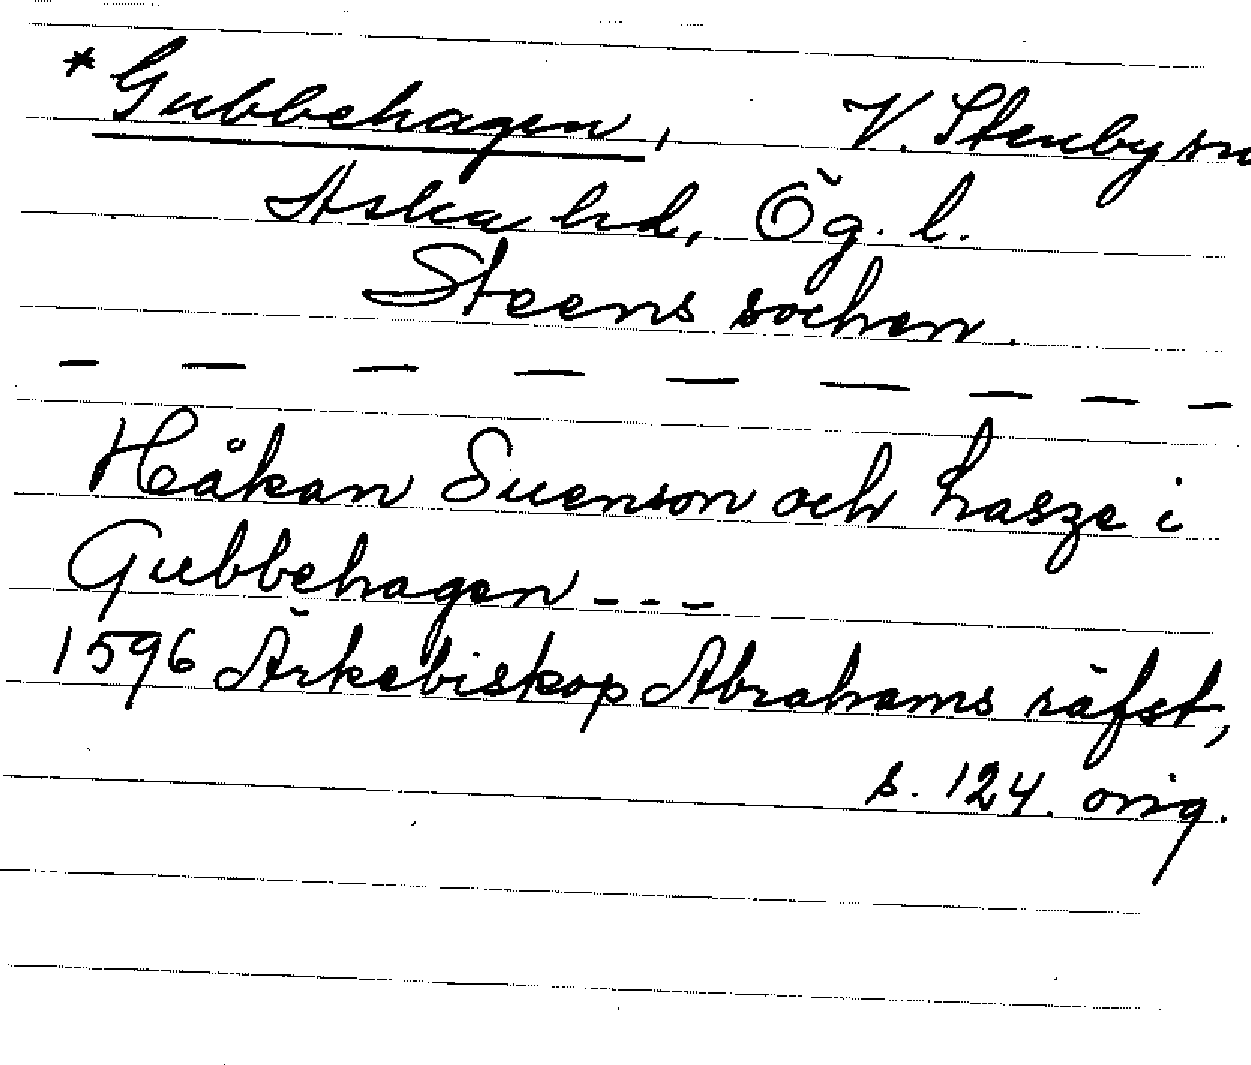 * Gubbehagen, V. Stenby sn
Aska hd, Ög. l.
Steens sochen.
— — — — — — — — —
Håkan Suenson och hasze i
Gubbehagen - - -
1596 Ärkebiskop Abrahams räfst,
s. 124. orig.